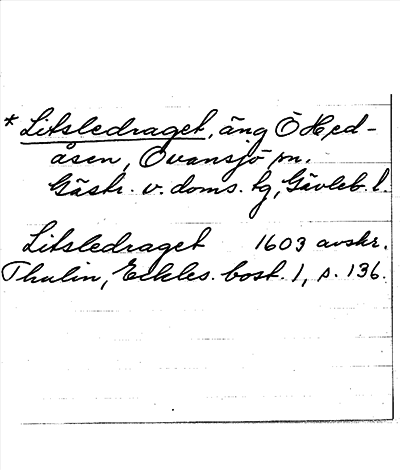 * Litsledraget, äng Ö Hed-
åsen, Ovansjö sn.
Gästr. v. doms. tg, Gävleb. l.
Litsledraget 1603 avskr.
Thulin, Eckles. bost. 1, s. 136.